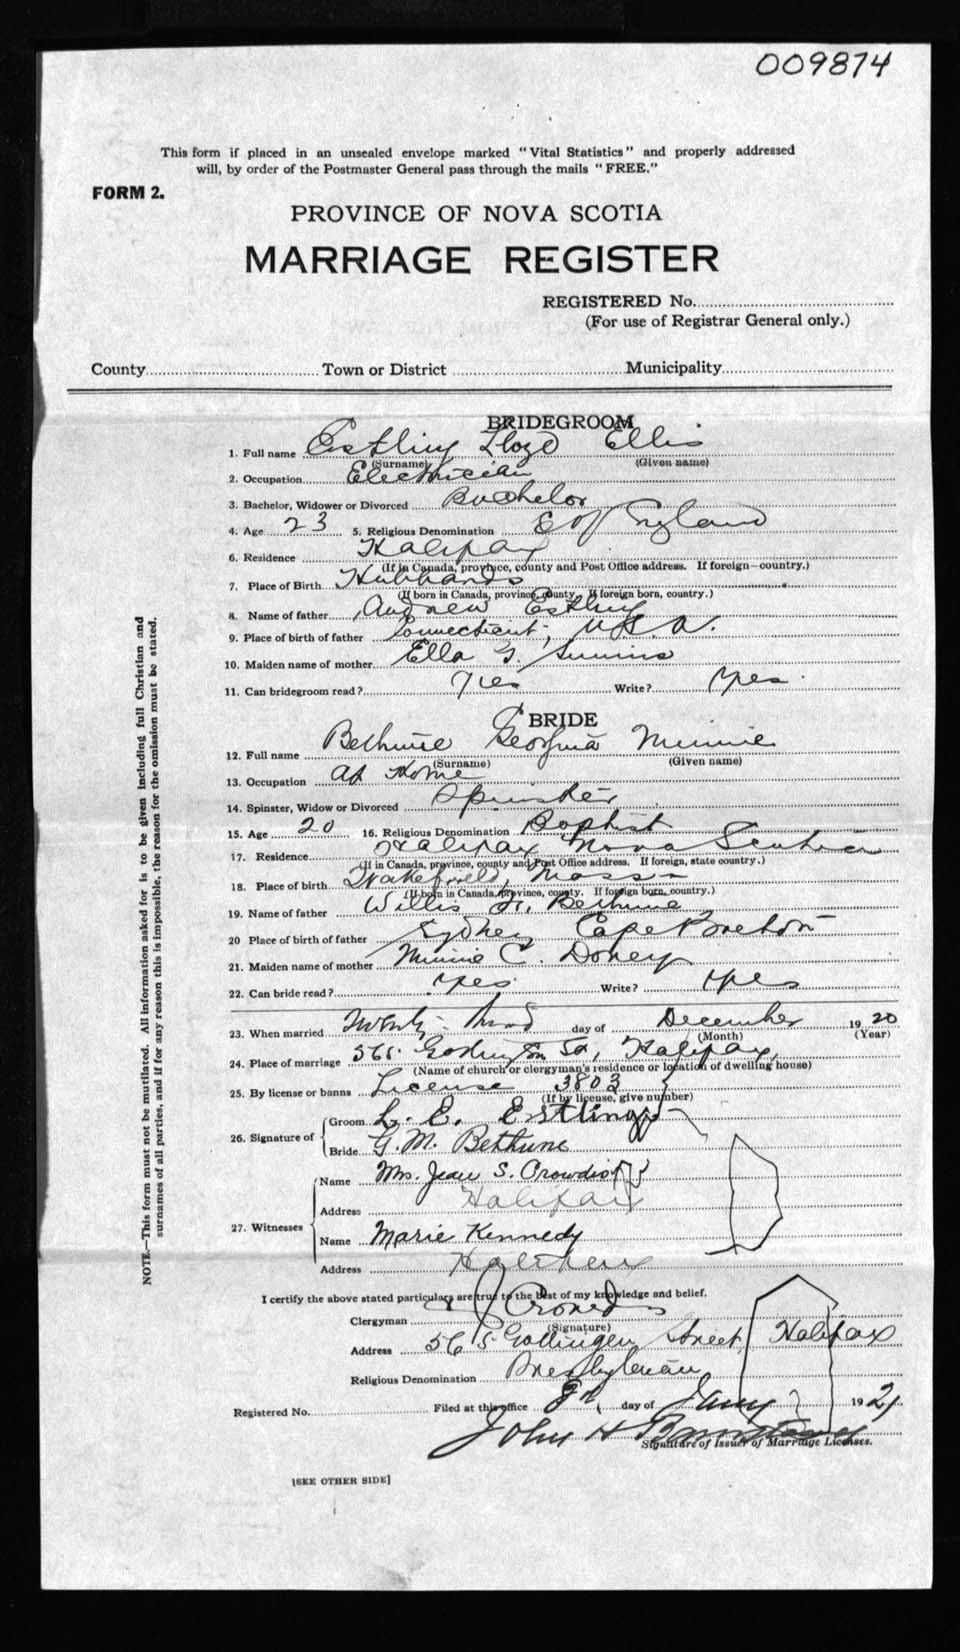 009874
This form if placed in an unsealed envelope marked "Vital Statistics" and properly addressed
will, by order of the Postmaster General pass through the mails "FREE."
FORM 2.
PROVINCE OF NOVA SCOTIA
MARRIAGE REGISTER
REGISTERED No.
(For use of Registrar General only.)
County Town or District Municipality
NOTE.—This form must not be mutilated. All information asked for is to be given including full Christian and
surnames of all parties, and if for any reason this is impossible, the reason for the omission must be stated.
BRIDEGROOM
1. Full name Estling Lloyd Ellis
(Surname) (Given name)
2. Occupation Electrician
3. Bachelor, Widower or Divorced Bachelor
4. Age 23 5. Religious Denomination C of England
6. Residence Halifax
(If in Canada, province, county and Post Office address. If foreign—country.)
7. Place of Birth Hubbards
(If born in Canada, province, county. If foreign born, country.)
8. Name of father Andrew Estling
9. Place of birth of father Connecticut, U.S.A.
10. Maiden name of mother Ella G.
11. Can bridegroom read? Yes Write? Yes
BRIDE
12. Full name Bethune Georgina Minnie
(Surname) (Given name)
13. Occupation At Home
14. Spinster, Widow or Divorced Spinster
15. Age 20 16. Religious Denomination Baptist
17. Residence Halifax Nova Scotia
(If in Canada, province, county and Post Office address. If foreign, state country.)
18. Place of birth Wakefield, Mass
(If born in Canada, province, county. If foreign born, country.)
19. Name of father Willis Bethune
20 Place of birth of father Sydney Cape Breton
21. Maiden name of mother Minnie C. Dorey
22. Can bride read? Yes Write? Yes
23. When married Twenty third day of December 1920
(Month) (Year)
24. Place of marriage 565 St, Halifax
(Name of church or clergyman's residence or location of dwelling house)
25. By license or banns License 3803
(If by license, give number)
26. Signature of Groom L. E. Estling
Bride G. M. Bethune
27. Witnesses Name Mrs. Jean S. Crowdis
Address Halifax
Name Marie Kennedy
Address Halifax
I certify the above stated particulars are true to the best of my knowledge and belief.
Clergyman
(Signature)
Address 565 Gottingen Street, Halifax
Religious Denomination Presbyterian
Registered No. Filed at this office day of Jany 1921
John H
Signature of Issuer of Marriage Licenses.
[SEE OTHER SIDE]